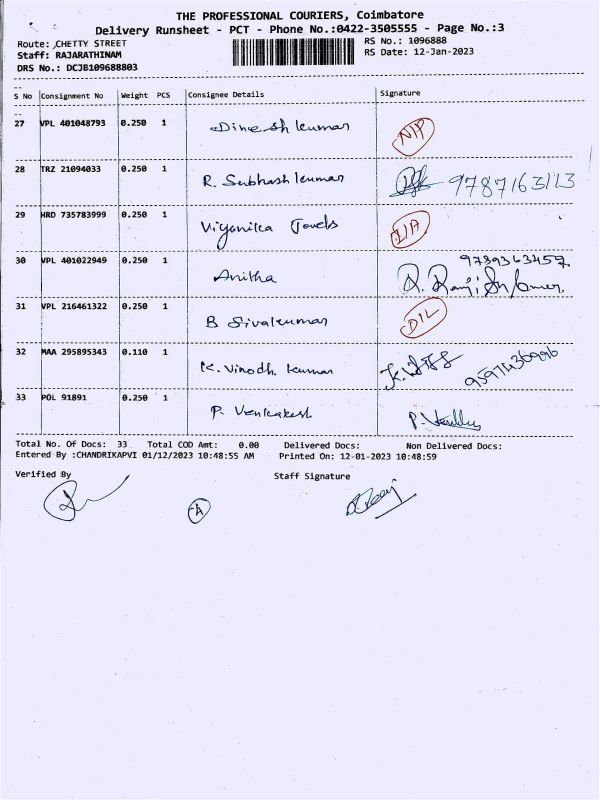 THE PROFESSIONAL COURIERS, Coimbatore
Delivery Runsheet - PCT - Phone No.:0422-3505555 - Page No.:3
Route: CHETTY STREET RS No.: 1096888
Staff: RAJARATHINAM RS Date: 12-Jan-2023
DRS No.: DCJB109688803
S No Consignment No Weight PCS Consignee Details Signature
27 VPL 401048793 0.250 1 Dineshkumar
28 TRZ 21094033 0.250 1 R. Subhash kumar
29 HRD 735783999 0.250 1 I/A
30 VPL 401022949 0.250 1 Anitha 9789363457
31 VPL 216461322 0.250 1 B Sivakumar D/L
32 MAA 295895343 0.110 1 K. Vinodh kumar
33 POL 91891 0.250 1 P. Venkatesh
Total No. Of Docs: 33 Total COD Amt: 0.00 Delivered Docs: Non Delivered Docs:
Entered By :CHANDRIKAPVI 01/12/2023 10:48:55 AM Printed On: 12-01-2023 10:48:59
Verified By Staff Signature
A